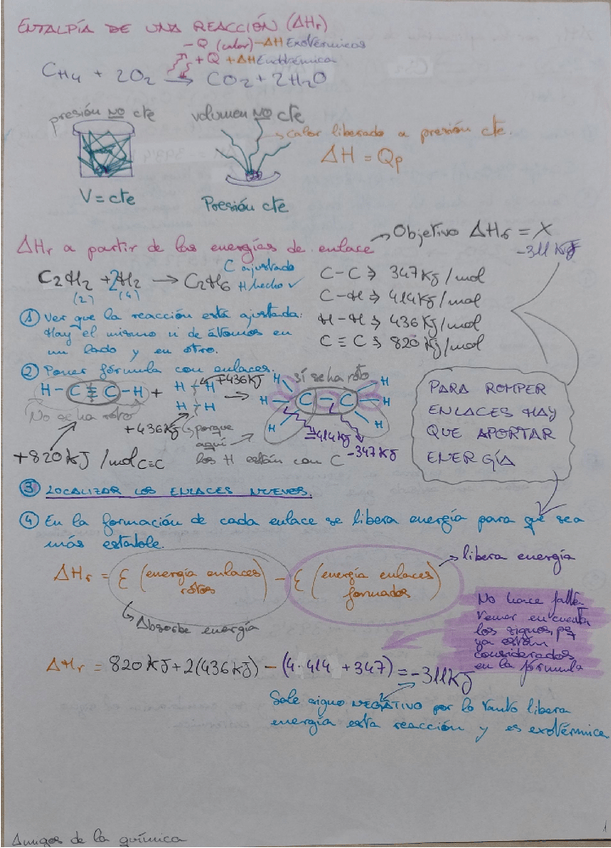 ENTALPÍA DE UNA REACCIÓN (ΔHr)
- Q (calor) -ΔH Exotérmicas
+ Q +ΔH Endotérmica
CH4 + 2O2 → CO2 + 2H2O
presión NO cte
volumen NO cte
calor liberado a presión cte.
ΔH = Qp
V = cte
Presión cte
ΔHr a partir de las energías de enlace
Objetivo ΔHr = X
-311 KJ
C2H2 + 2H2 → C2H6
(2) (4)
C ajustado
H hecho ✓
C-C → 347 KJ/mol
C-H → 414 KJ/mol
H-H → 436 KJ/mol
C≡C → 820 KJ/mol
① Ver que la reacción está ajustada:
Hay el mismo nº de átomos en
un lado y en otro.
② Poner fórmula con enlaces.
sí se ha roto
H-C≡C-H + H-H +436KJ → C-C
H-H
No se ha roto
+436KJ
porque
aquí
los H están con C
-414KJ
-347KJ
+820 KJ/mol C≡C
PARA ROMPER
ENLACES HAY
QUE APORTAR
ENERGÍA
③ LOCALIZAR LOS ENLACES NUEVOS.
④ En la formación de cada enlace se libera energía para que sea
más estable.
libera energía
ΔHr = Σ (energía enlaces rotos) - Σ (energía enlaces formados)
Absorbe energía
No hace falta
tener en cuenta
los signos pq
ya están
considerados
en la fórmula
ΔHr = 820 KJ + 2(436 KJ) - (4·414 + 347) = -311 KJ
Sale signo NEGATIVO por lo tanto libera
energía esta reacción y es exotérmica
Amigos de la química